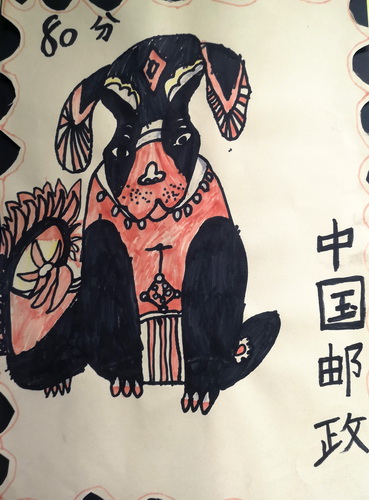 80分
中国邮政